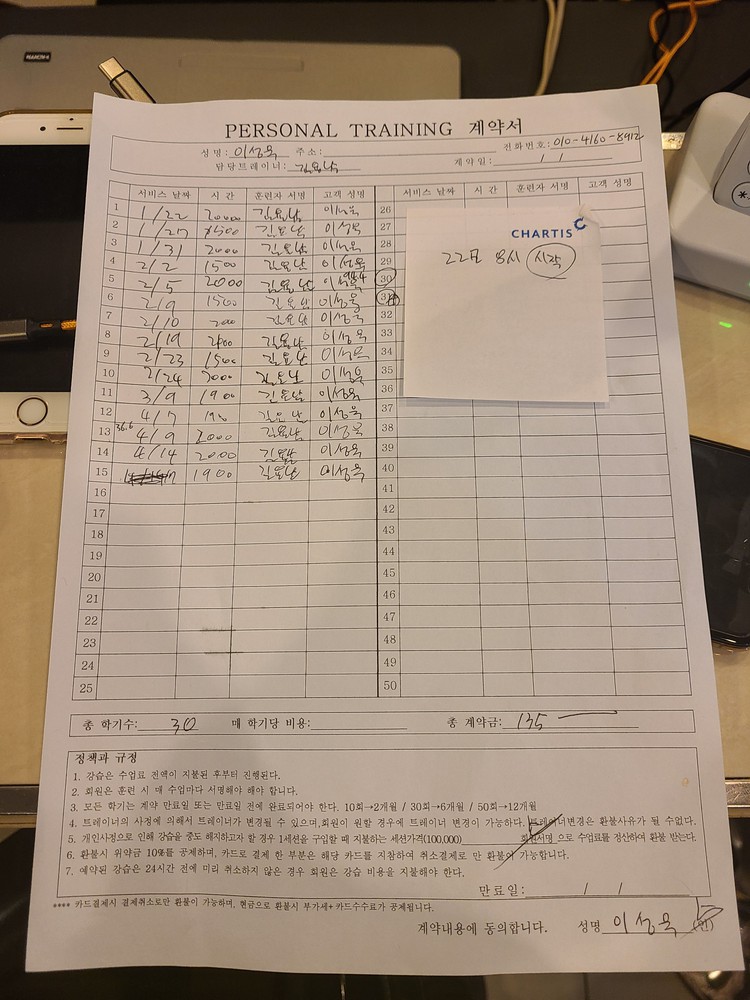 PERSONAL TRAINING 계약서
성명: 이성욱 주소: 전화번호: 010-4160-8912
담당트레이너: 계약일: / /
서비스 날짜 시간 훈련자 서명 고객 성명 서비스 날짜 시간 훈련자 서명 고객 성명
1 1/22 2000 이성욱 26
2 1/27 이성욱 27
3 1/31 2000 이성욱 28
4 2/2 1500 이성욱 29
5 2/5 2000 30
6 2/9 1500 이성욱 31
7 2/10 이성욱 32
8 2/19 이성욱 33
9 2/23 1500 이성욱 34
10 2/24 2000 이성욱 35
11 3/9 1900 이성욱 36
12 4/7 이성욱 37
13 36.6 4/9 2000 이성욱 38
14 4/14 2000 이성욱 39
15 1900 이성욱 40
16 41
17 42
18 43
19 44
20 45
21 46
22 47
23 48
24 49
25 50
CHARTIS
22日 8시 시작
총 학기수: 30 매 학기당 비용: 총 계약금: 135
정책과 규정
1. 강습은 수업료 전액이 지불된 후부터 진행된다.
2. 회원은 훈련 시 매 수업마다 서명해야 해야 합니다.
3. 모든 학기는 계약 만료일 또는 만료일 전에 완료되어야 한다. 10회→2개월 / 30회→6개월 / 50회→12개월
4. 트레이너의 사정에 의해서 트레이너가 변경될 수 있으며,회원이 원할 경우에 트레이너 변경이 가능하다. 트레이너변경은 환불사유가 될 수없다.
5. 개인사정으로 인해 강습을 중도 해지하고자 할 경우 1세션을 구입할 때 지불하는 세션가격(100,000) 회원서명 으로 수업료를 정산하여 환불 받는다.
6. 환불시 위약금 10%를 공제하며, 카드로 결제 한 부분은 해당 카드를 지참하여 취소결제로 만 환불이 가능합니다.
7. 예약된 강습은 24시간 전에 미리 취소하지 않은 경우 회원은 강습 비용을 지불해야 한다.
만료일: / /
**** 카드결제시 결제취소로만 환불이 가능하며, 현금으로 환불시 부가세+카드수수료가 공제됩니다.
계약내용에 동의합니다. 성명 이성욱 (인)